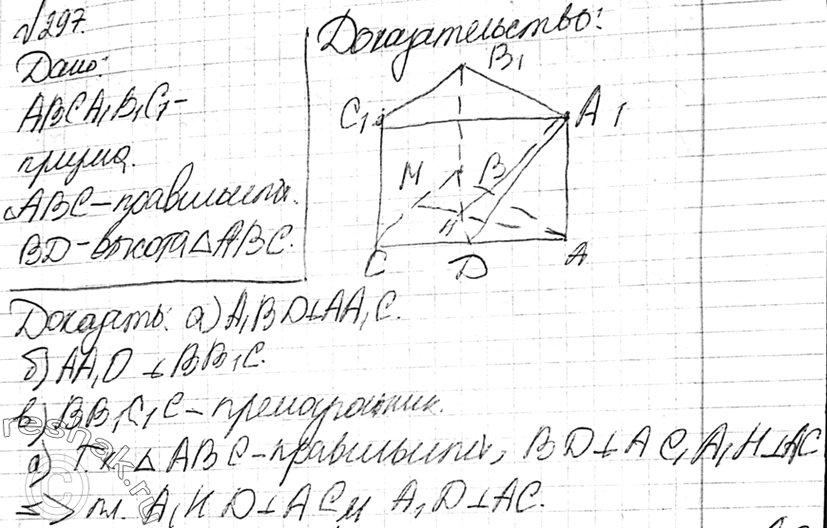 √297.
Дано:
ABCA₁B₁C₁-
призма.
ABC-правильный.
BD-высота △ABC.
Доказательство:
B₁
C₁
A₁
M
B
H
C
D
A
Доказать: а) A₁BD⊥AA₁C.
б) AA₁O ⊥ BB₁C.
в) BB₁C₁C-прямоугольник.
а) Т.к. △ABC-правильный, BD⊥AC, A₁H⊥AC
=> пл. A₁HD⊥AC и A₁D⊥AC.
reshak.ru